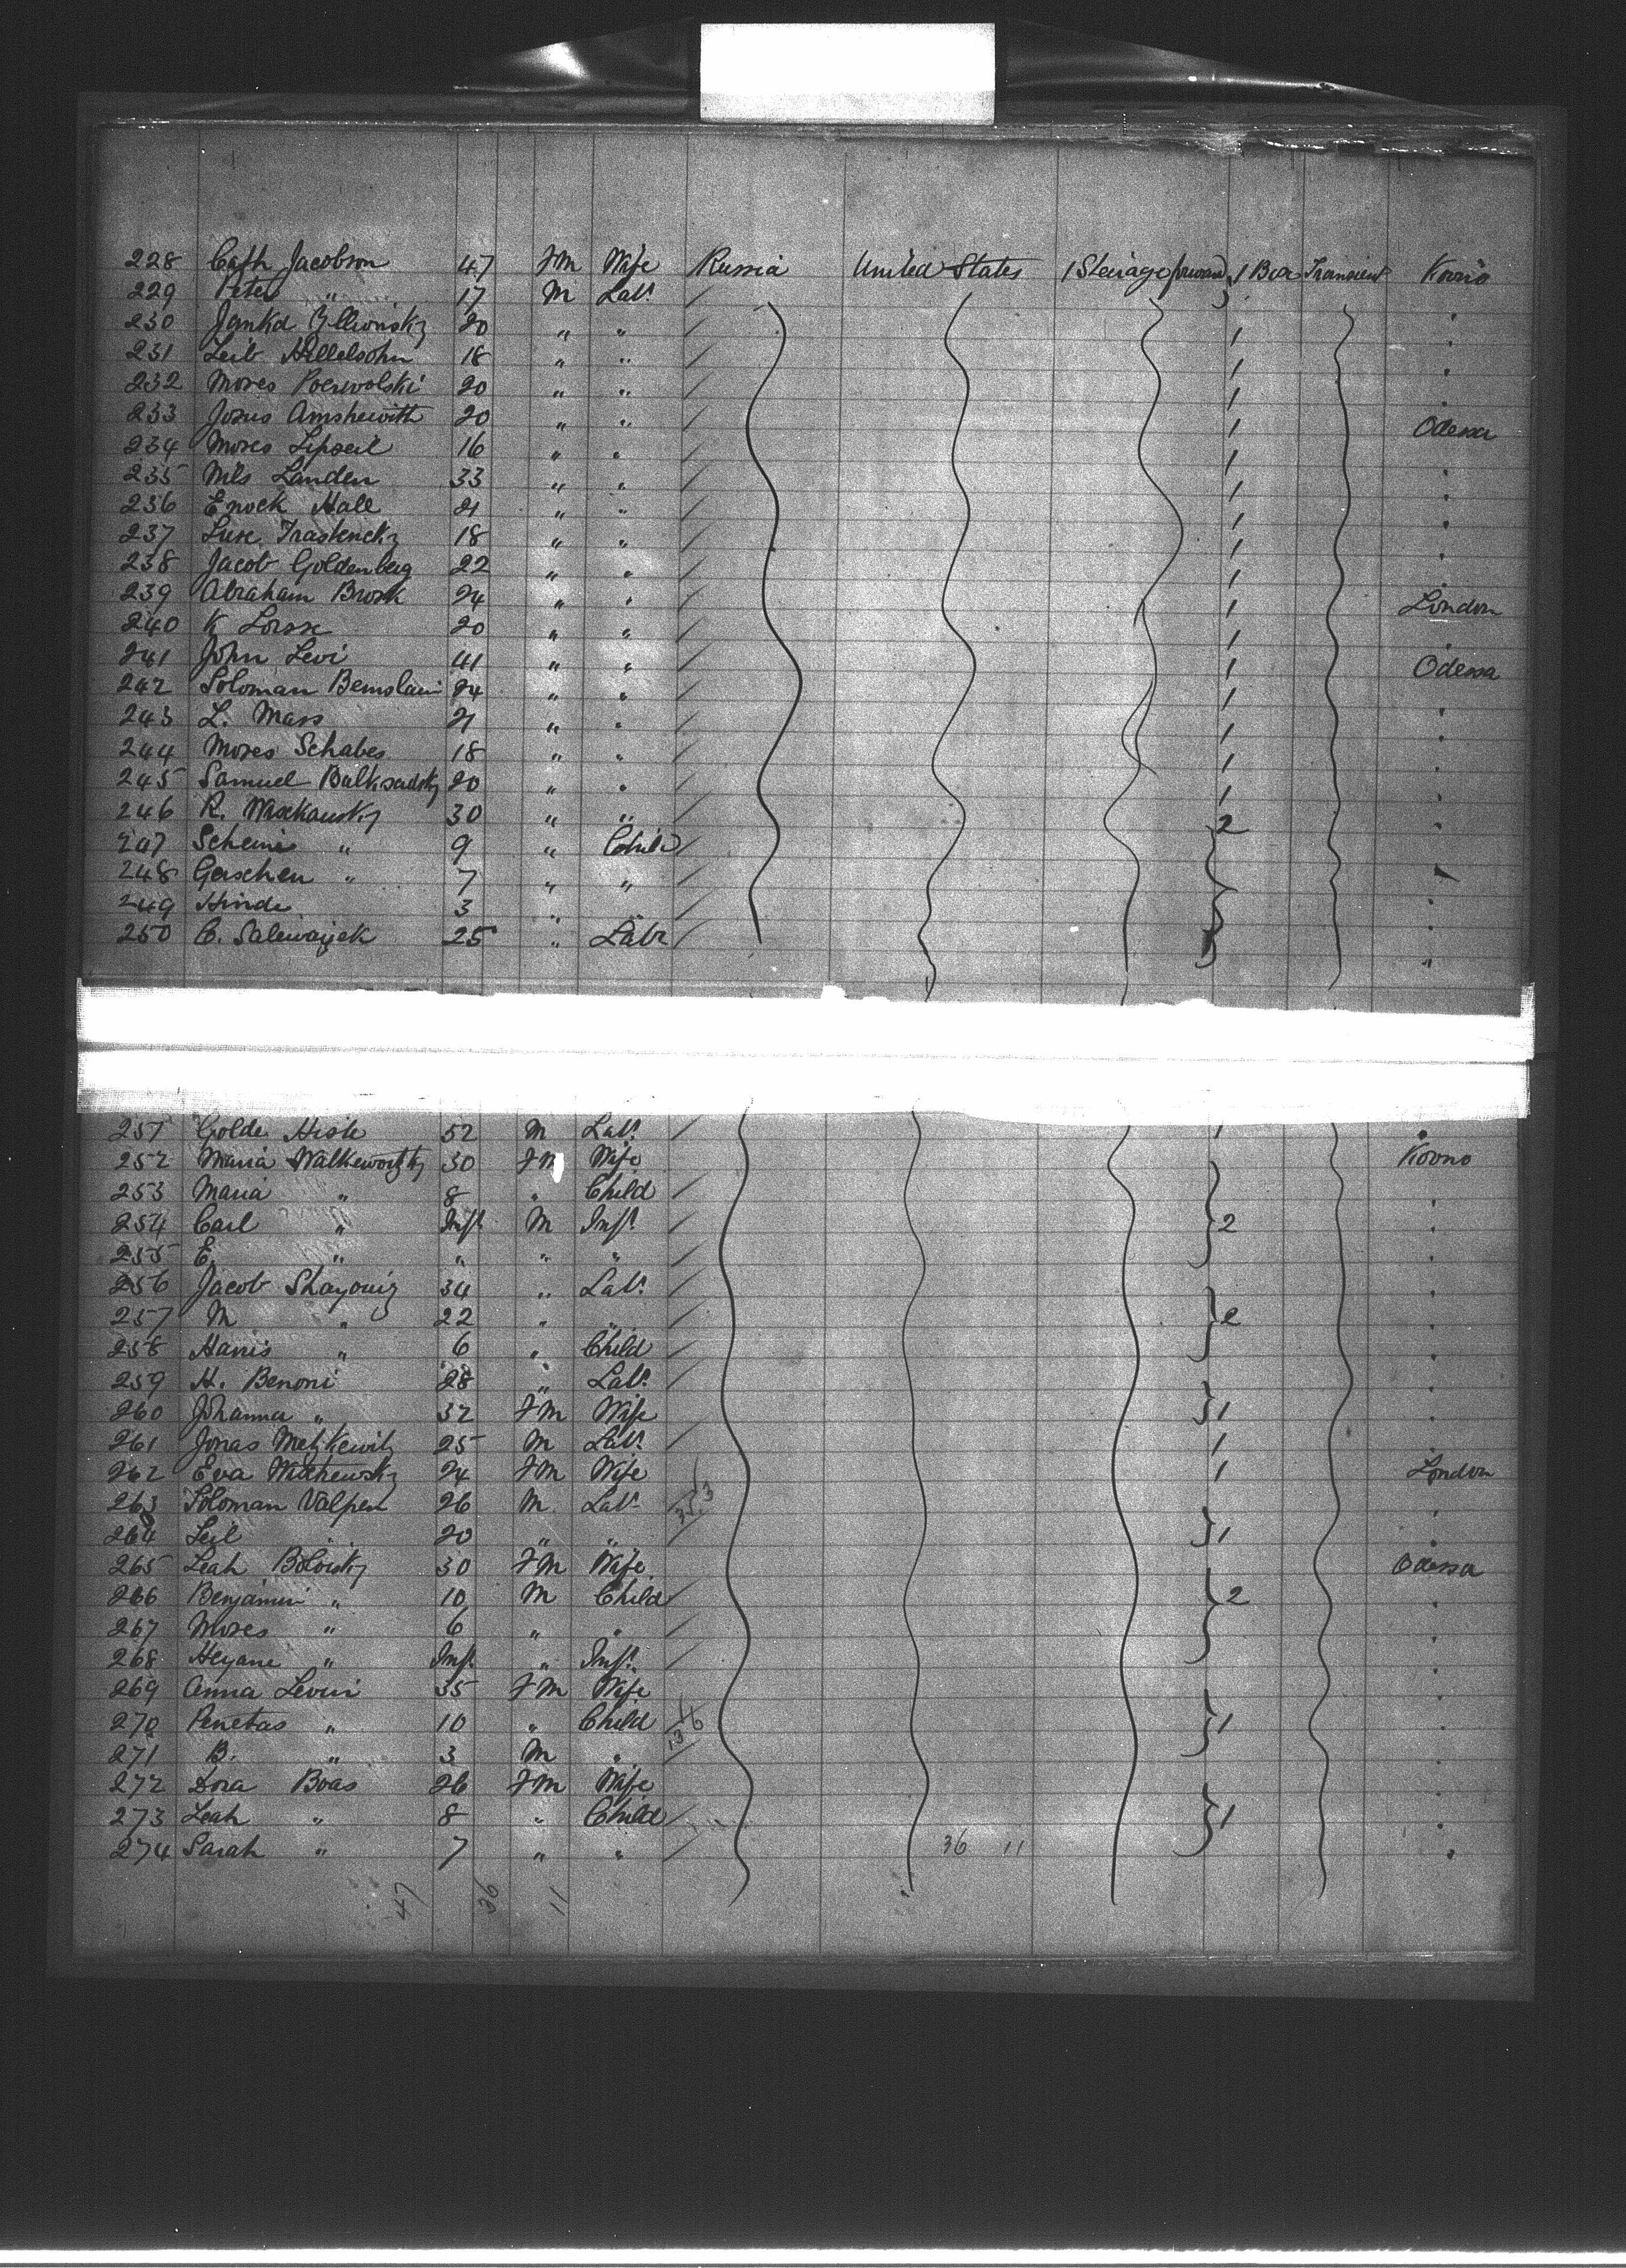 228 Cath Jacobson 47 FM Wife Russia United States Steirage forward 1 Box Transient Kovno
229 Peter " 17 M Labr "
230 Jankd 20 " " 1 "
231 Leib Hillelsohn 18 " " 1 "
232 Moses Poerwolski 20 " " 1 "
233 Josus Amshewith 20 " " 1 Odessa
234 Moses Lipseil 16 " " 1 "
235 Nils Landen 33 " " 1 "
236 Enock Hall 21 " " 1 "
237 Trastenetky 18 " " 1 "
238 Jacob Goldenberg 22 " " 1 "
239 Abraham Brosk 24 " " 1 London
240 K 20 " " 1 "
241 John Levi 41 " " 1 Odessa
242 Soloman 24 " " 1 "
243 L. Mass 21 " " 1 "
244 Moses Schabes 18 " " 1 "
245 Samuel 20 " " 1 "
246 R. 30 " " 2 "
247 " 9 " Child "
248 Gerschen " 7 " " "
249 Hinde 3 " " "
250 25 " Labr "
251 Golde Hisk 52 M Labr 1 "
252 Maria 30 FM Wife Kovno
253 Maria " 8 " Child "
254 Carl " Inft M Inft 2 "
255 E. " " " " "
256 Jacob 34 " Labr "
257 M " 22 " " 2 "
258 Harris " 6 " Child "
259 H. Benoni 28 " Labr "
260 Johanna " 32 FM Wife 1 "
261 Jonas Metzkewitz 25 M Labr 1 "
262 Eva 24 FM Wife 1 London
263 Soloman Valpen 26 M Labr "
264 Leil 20 " " 1 "
265 Leah 30 FM Wife Odessa
266 Benjamin " 10 M Child 2 "
267 Moses " 6 " " "
268 Heyane " Inft " Inft "
269 Anna Levin 35 FM Wife "
270 Penetas " 10 " Child 1 "
271 B. " 3 M " "
272 Dora Boas 26 FM Wife "
273 Leah " 8 " Child 1 "
274 Sarah " 7 " " 36 11 "
47 36 11